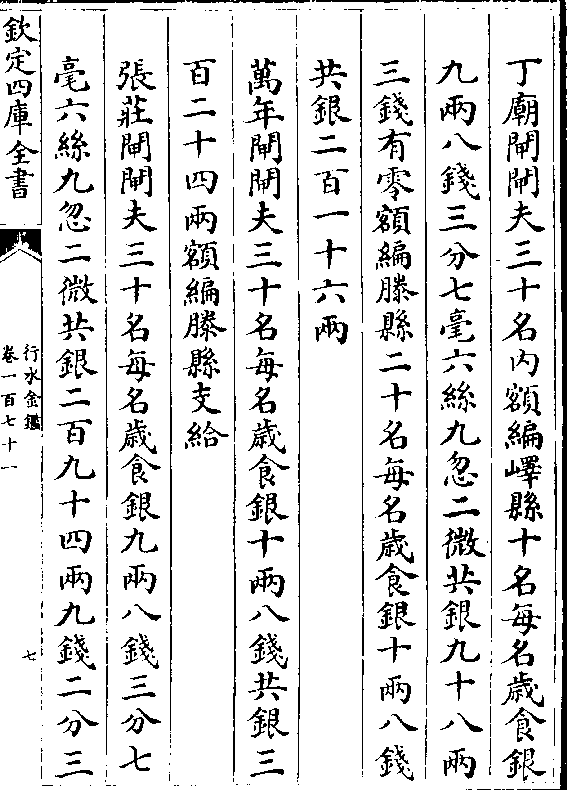 丁廟閘閘夫三十名内額編嶧縣十名每名歲食銀
九兩八錢三分七毫六絲九忽二微共銀九十八兩
三錢有零額編滕縣二十名每名歲食銀十兩八錢
共銀二百一十六兩
萬年閘閘夫三十名每名歲食銀十兩八錢共銀三
百二十四兩額編滕縣支給
張莊閘閘夫三十名每名歲食銀九兩八錢三分七
毫六絲九忽二微共銀二百九十四兩九錢二分三
欽定四庫全書
行水金鑑
卷一百七十一
七